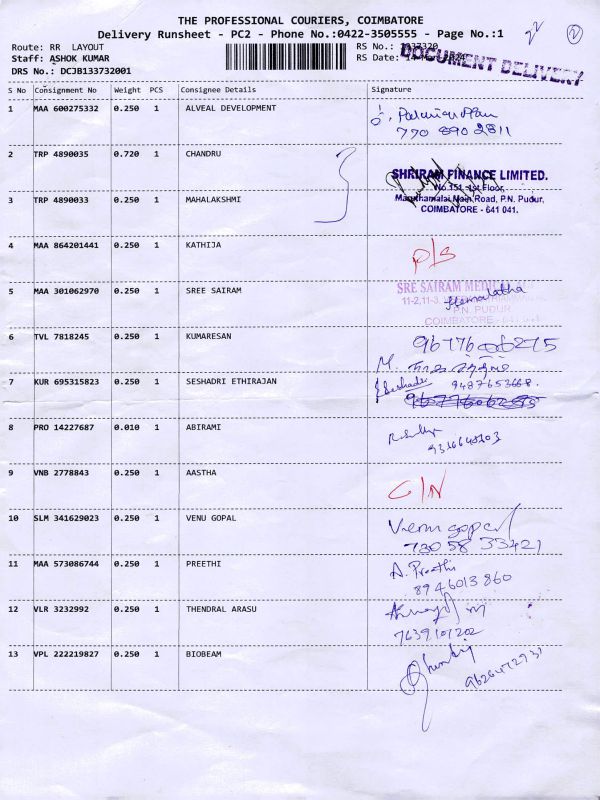 THE PROFESSIONAL COURIERS, COIMBATORE
Delivery Runsheet - PC2 - Phone No.:0422-3505555 - Page No.:1
2
Route: RR LAYOUT
Staff: ASHOK KUMAR
DRS No.: DCJB133732001
RS No.:
RS Date:
DOCUMENT DELIVERY
S No Consignment No Weight PCS Consignee Details Signature
1 MAA 600275332 0.250 1 ALVEAL DEVELOPMENT
770 890 2811
2 TRP 4890035 0.720 1 CHANDRU
SHRIRAM FINANCE LIMITED.
No.351, 1st Floor,
Maruthamalai Main Road, P.N. Pudur,
COIMBATORE - 641 041.
3 TRP 4890033 0.250 1 MAHALAKSHMI
4 MAA 864201441 0.250 1 KATHIJA
D/S
5 MAA 301062970 0.250 1 SREE SAIRAM
SRE SAIRAM
11-2,11-3,
Hemalatha
P.N. PUDUR
COIMBATORE
6 TVL 7818245 0.250 1 KUMARESAN
7 KUR 695315823 0.250 1 SESHADRI ETHIRAJAN
9487653668.
8 PRO 14227687 0.010 1 ABIRAMI
9 VNB 2778843 0.250 1 AASTHA
C/N
10 SLM 341629023 0.250 1 VENU GOPAL
Venu gopal
730 58 33421
11 MAA 573086744 0.250 1 PREETHI
A. Preethi
8946013860
12 VLR 3232992 0.250 1 THENDRAL ARASU
7639101202
13 VPL 222219827 0.250 1 BIOBEAM